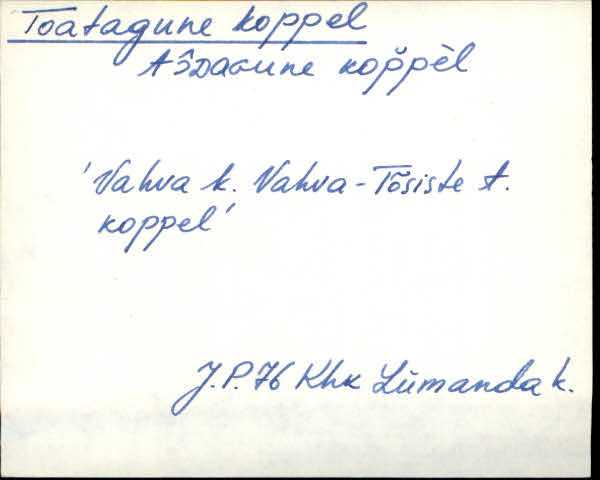 Toatagune koppel
kop̆pèl
'Vahva k. Vahva-Tõsiste t.
koppel'
J.P. 76 Khk Lümanda k.